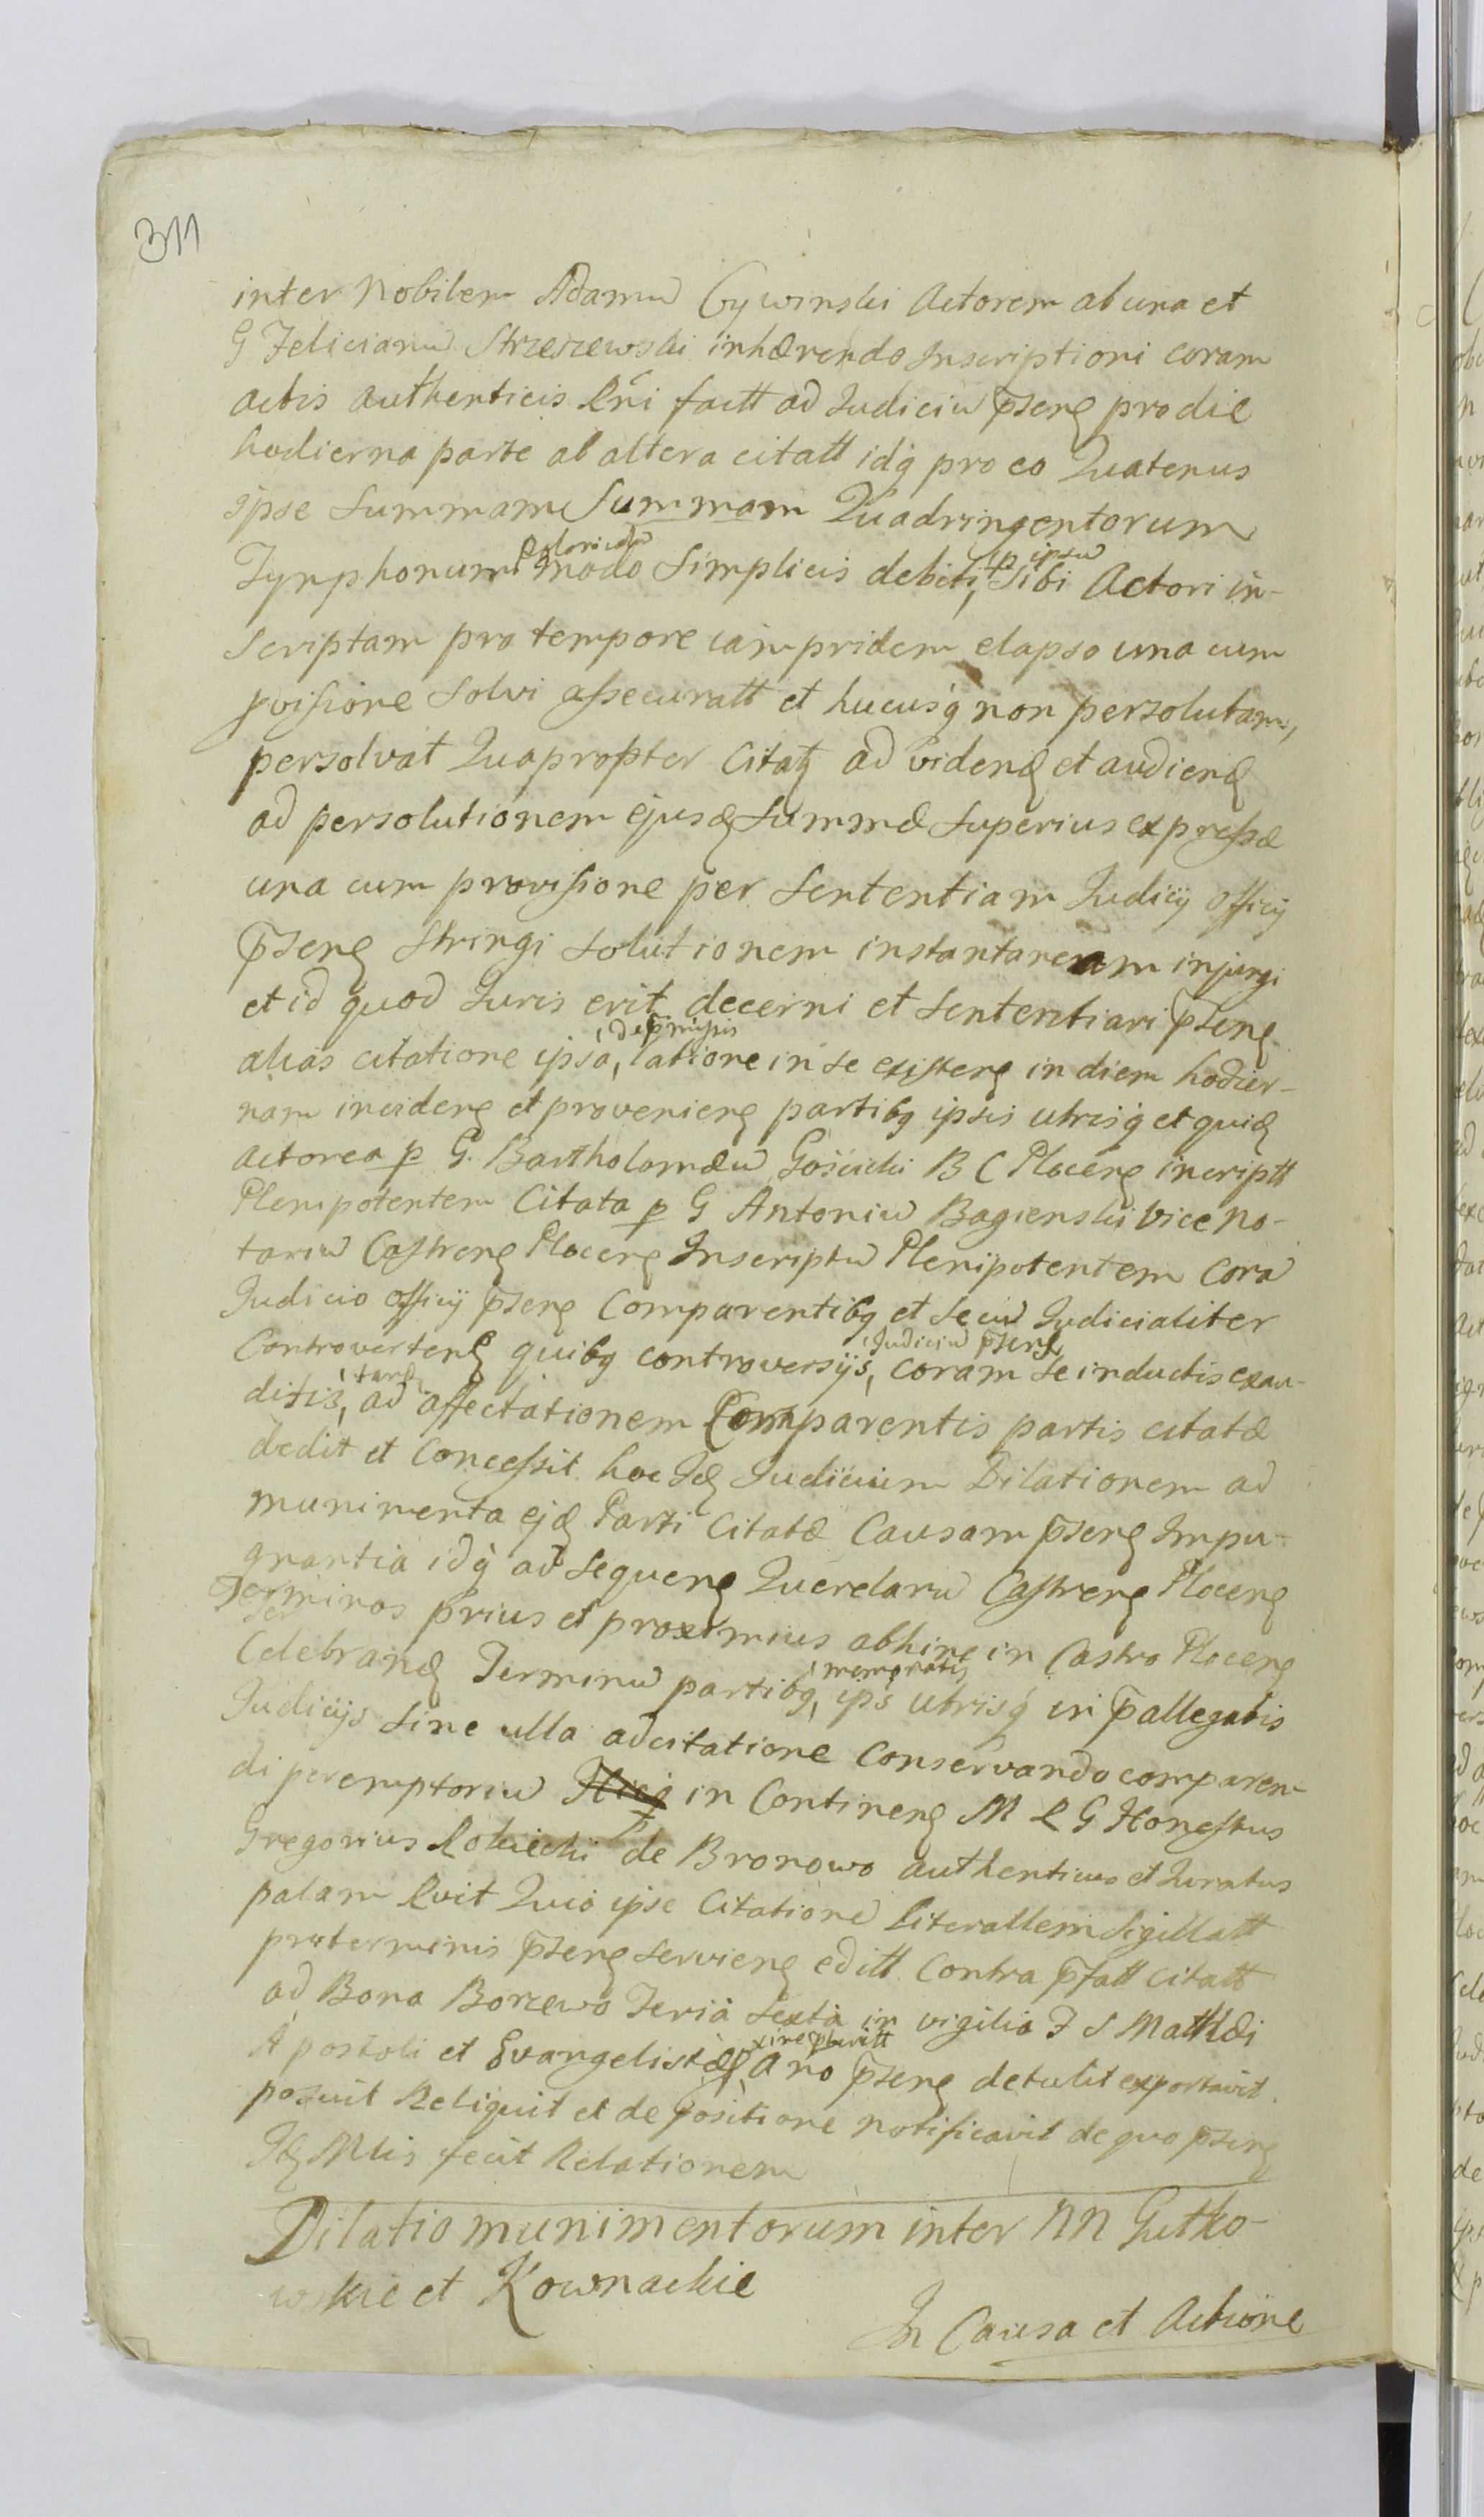 311
inter Nobilem Adamu Cywinski Actorem ab una et
G Felicianu Strzeszewski inhærendo Inscriptioni coram
actis authenticis Rni factt ad Judiciu p̄sens pro die
hodierna parte ab altera citatt idq̨ pro eo Quatenus
ipse Summam Summam Quadringentorum
Polonicalu p ipsu
Tynphonum modo Simplicis debiti, Sibi Actori in-
scriptam pro tempore iam pridem elapso una cum
pvisione Solvi assecuratt et hucusq̨ non persolutam,
persolvat Quapropter Citatq ad videnđ et audienđ
ad persolutionem ejusđ Summæ Superius expressæ
una cum provisione per Sententiam Judicij Officij
p̄sens Stringi Solutionem instantaneam injungi
et id quod Juris erit decerni et Sententiari p̄sens
alias citatione ipsa, latione in se existens in diem hodier-
nam incidens et proveniens partibq ipsis utrisq̨ et quiđ
actorea p G. Bartholomæu Gościcki B C Plocens inscriptt
Plenipotentem Citata p G Antoniu Bagienski Vice No-
tariu Castrens Plocens Inscriptu Plenipotentem Cora
Judicio Officij p̄sens Comparentibq et Secu Judicialiter
Judiciu p̄sens
Controvertenđ quibq controversijs, coram Se inductis exau-
tand
ditis, ad affectationem Comparentis partis citatæ
dedit et Concessit hoc Iđ Judicium Dilationem ad
munimenta ejđ Parti Citatæ Causam p̄sens Impu-
gnantia idq̨ ad Sequens Querelaru Castrens Plocens
Terminos prius et proximius abhinc in Castro Plocens
memoratis
Celebranđ Terminu partibq, ips utrisq̨ in p̄allegatis
Judicijs Sine ulla adcitatione Conservando comparen-
di peremptoriu in Continens M R G Honestus
Gregorius Rokicki de Bronowo authenticus et Juratus
palam Rvit Quia ipse Citatione literallem Sigillatt
pro terminis p̄sens Serviens editt Contra p̄fatt Citatt
ad Bona Borzewo Feria Sexta in vigilia F S Mathæi
Apostoli et Evangelistæ, Ano p̄sens detulit exportavit
posuit Reliquit et de positione notificavit de quo p̄sens
Iđ Mlis fecit Relationem
Dilatio munimentorum inter NN Gutko-
wskie et Kownackie
In Causa et Actione